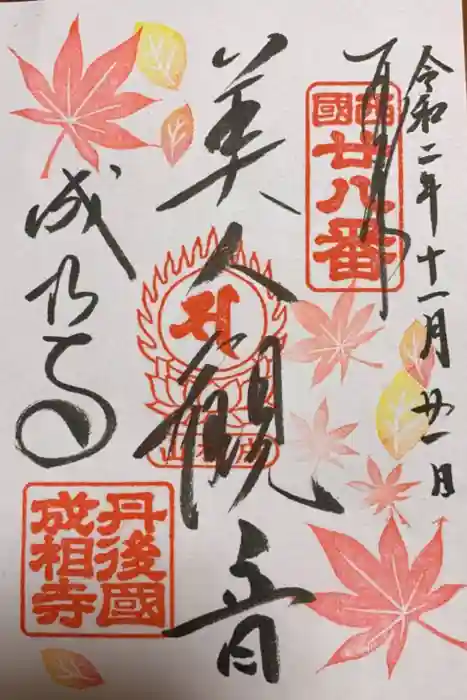 令和二年十一月廿一日
奉拝
西國
廿八番
美人觀音
成相寺
丹後國
成相寺